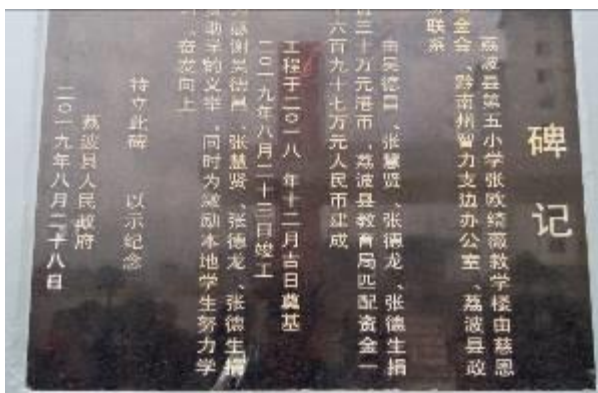 碑记
荔波县第五小学张欧绮薇教学楼由慈恩
基金会、黔南州智力支边办公室、荔波县政
协联系
由吴德昌、张慧贤、张德龙、张德生捐
三十万元港币，荔波县教育局匹配资金一
十六百九十七万元人民币建成
工程于二〇一八年十二月吉日奠基
二〇一九年八月二十三日竣工
感谢吴德昌、张慧贤、张德龙、张德生捐
助学的义举，同时为激励本地学生努力学
奋发向上
特立此碑 以示纪念
荔波县人民政府
二〇一九年八月二十八日